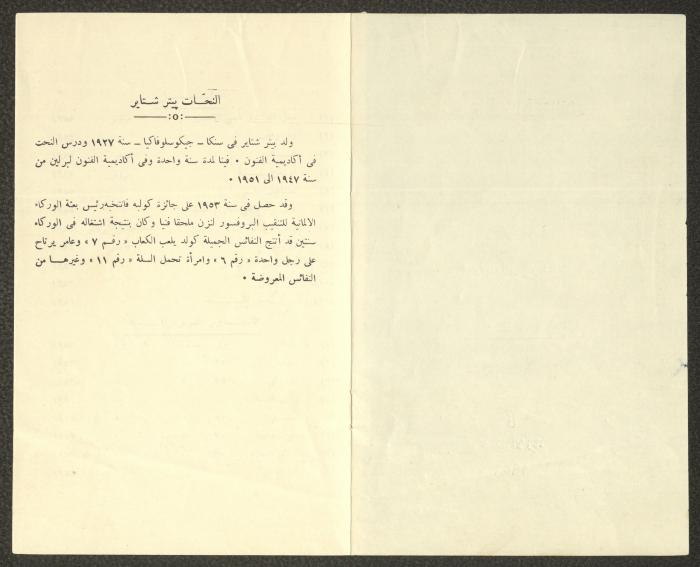 النحّات پيتر شتاير
—:o:—
ولد پيتر شتاير فى سنكا – جيكوسلوفاكيا – سنة ١٩٢٧ ودرس النحت
فى أكاديمية الفنون • فينا لمدة سنة واحدة وفى أكاديمية الفنون لبرلين من
سنة ١٩٤٧ الى ١٩٥١ •
وقد حصل فى سنة ١٩٥٣ على جائزة كولبه فانتخبه رئيس بعثة الوركاء
الالمانية للتنقيب البروفسور لنزن ملحقا فنيا وكان بنتيجة اشتغاله فى الوركاء
سنتين قد أنتج النفائس الجميلة كولد يلعب الكعاب « رقم ٧ » وعامر يرتاح
على رجل واحدة « رقم ٦ » وامرأة تحمل السلة « رقم ١١ » وغيرها من
النفائس المعروضة •